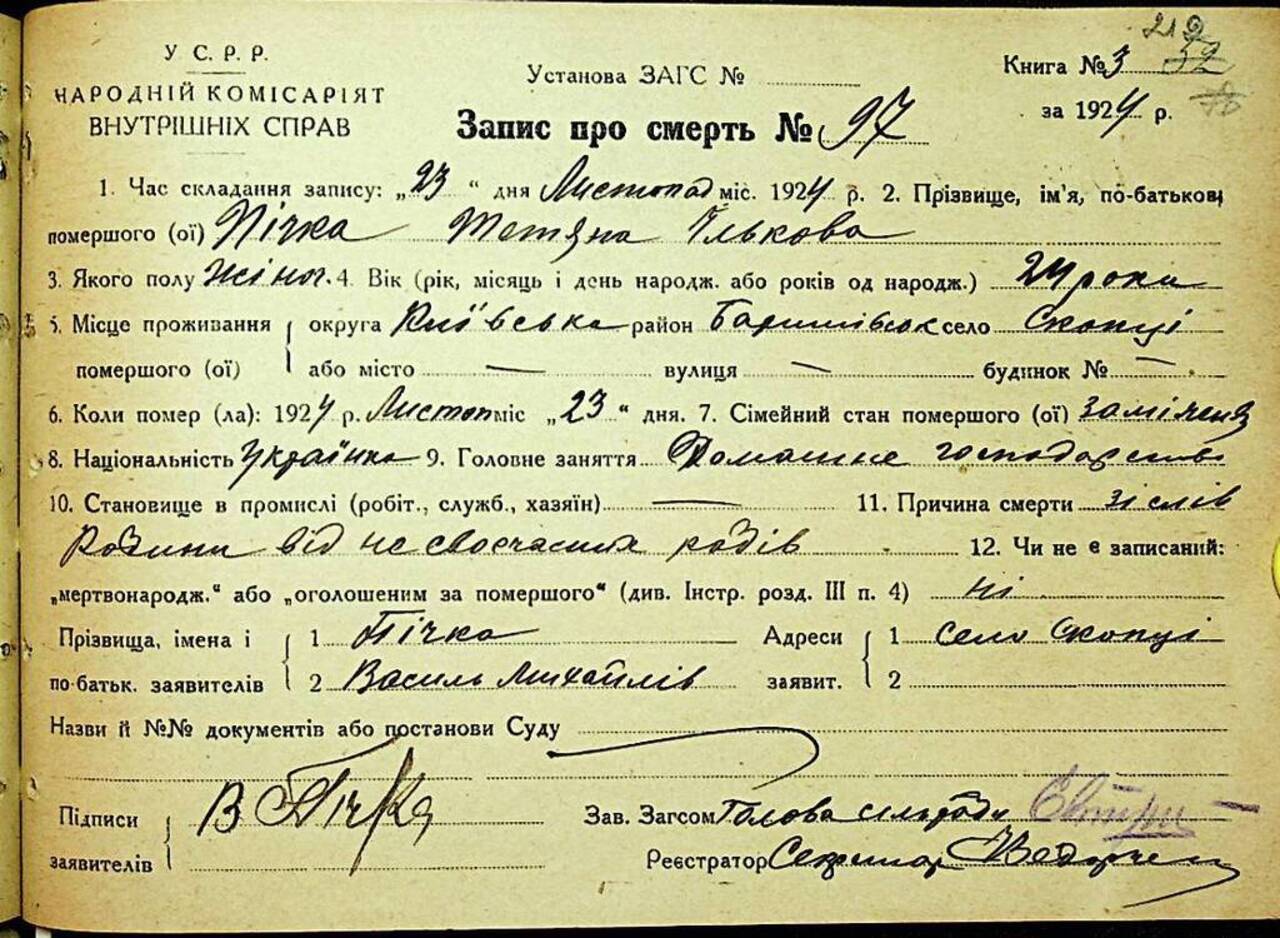 У С. Р. Р.
НАРОДНІЙ КОМІСАРІЯТ
ВНУТРІШНІХ СПРАВ
Установа ЗАГС №
Книга № 3
212
52
за 1924 р.
Запис про смерть № 97
1. Час складання запису: „23" дня Листопад міс. 1924 р. 2. Прізвище, ім'я, по-батькові
помершого (ої) Пічка Тетяна Ількова
3. Якого полу жіноч. 4. Вік (рік, місяць і день народж. або років од народж.) 24 роки
5. Місце проживання округа Київська район Баришівськ село Скопці
помершого (ої) або місто — вулиця — будинок № —
6. Коли помер (ла): 1924 р. Листоп міс „23" дня. 7. Сімейний стан помершого (ої) заміжня
8. Національність Українка 9. Головне заняття Домашне господарство
10. Становище в промислі (робіт., служб., хазяїн) — 11. Причина смерти
від не своєчасних родів 12. Чи не є записаний:
„мертвонародж." або „оголошеним за помершого" (див. Інстр. розд. III п. 4) ні
Прізвища, імена і 1 Пічка Адреси 1 село Скопці
по-батьк. заявителів 2 Василь Михайлів заявит. 2
Назви й №№ документів або постанови Суду
Підписи В Пічка Зав. Загсом Голова сільради
заявителів Реєстратор Секритар